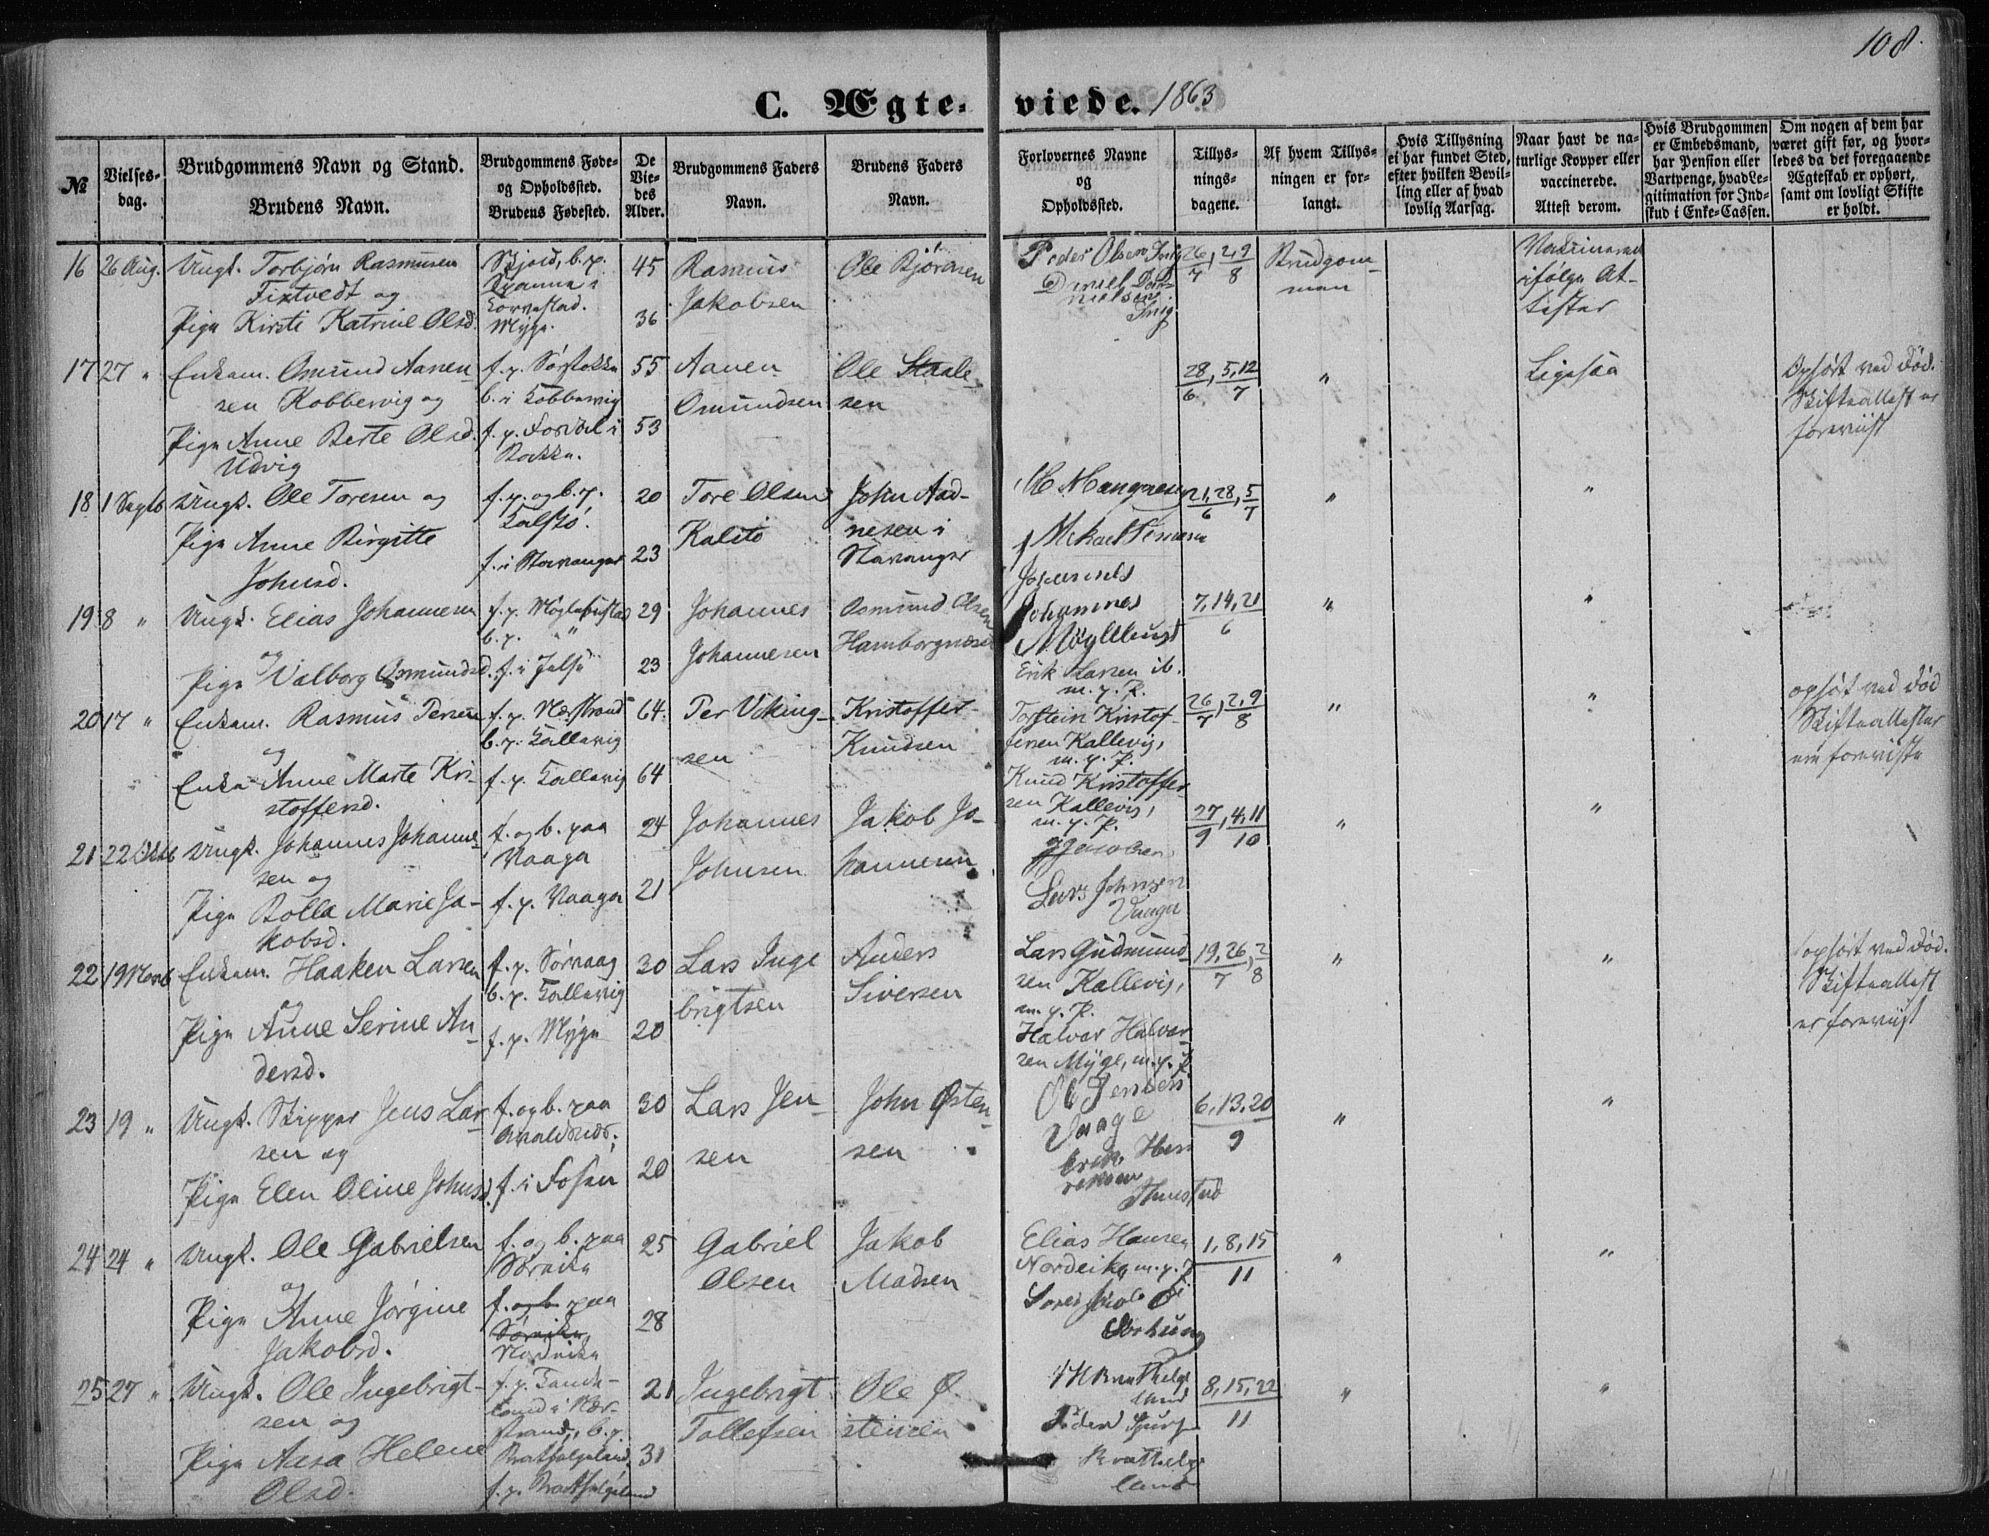 108.
C. Ægteviede. 1863
№
Vielses-
dag.
Brudgommens Navn og Stand.
Brudens Navn.
Brudgommens Føde-
og Opholdssted.
Brudens Fødested.
De
Vie-
des
Alder.
Brudgommens Faders
Navn.
Brudens Faders
Navn.
Forlovernes Navne
og
Opholdssted.
Tillys-
nings-
dagene.
Af hvem Tillys-
ningen er for-
langt.
Hvis Tillysning
ei har fundet Sted,
efter hvilken Bevil-
ling eller af hvad
lovlig Aarsag.
Naar havt de na-
turlige Kopper eller
vaccinerede.
Attest derom.
Hvis Brudgommen
er Embedsmand,
har Pension eller
Vartpenge, hvad Le-
gitimation for Ind-
skud i Enke-Cassen.
Om nogen af dem har
været gift før, og hvor-
ledes da det foregaaende
Ægteskab er ophørt,
samt om lovligt Skifte
er holdt.
16 26 Aug. Ungk. Torbjørn Rasmusen
Fixtvedt og
Pige Kirsti Katrine Olsd.
Skjold, b. p.
Torvestad.
Myge.
45
36
Rasmus
Jakobsen
Ole Bjørnsen
Peder Olsen
Daniel Da-
nielsen
26, 2, 9
7 8
Brudgom-
men
Vaccinerede
ifølge At-
tester
17 27 " Enkem. Omund Aanen-
sen Kobbervig og
Pige Anne Berte Olsd.
Udvig
f. p. Sørstokke
b. i Kobbervig
f. p.
Bokken.
55
53
Aanen
Omundsen
Ole Staale-
sen
28, 5, 12
6 7
"
Ligesaa
Ophørt ved Død.
Skifteattest er
foreviist
18 1 Septb Ungk. Ole Toresen og
Pige Anne Birgitte
Johnsd.
f. p. og b. p.
Kalstø.
f. i Stavanger
20
23
Tore Olsen
Kalstø
John Aad-
nesen i
Stavanger
21, 28, 5
6 7
"
"
19 8 " Ungk. Elias Johannesen
og
Pige Valborg Osmundsd.
f. p. Møglebustad
b. p. " "
f. i Jelsø
29
23
Johannes
Johannesen
Osmund Olsen
Hamborgnæset
Johannes
Erik Larsen ib.
m. p. P.
7, 14, 21
6
"
"
20 17 " Enkem. Rasmus Persen
og
Enke Anne Marte Kri-
stoffersd.
f. p. Nærstrand
b. p. Kallevig
f. p. Kallevig
64
64
Per Viking-
sen
Kristoffer
Knudsen
Torstein Kristof-
fersen Kallevig,
m. p. P.
Knud Kristoffer-
sen Kallevig,
m. p. P.
26, 2, 9
7 8
"
"
ophørt ved Død
Skifteattester
ere foreviste
21 22 Oktb Ungk. Johannes Johanne-
sen og
Pige Bolla Marie Ja-
kobsd.
f. og b. paa
Vaage
f. p. Vaage
24
21
Johannes
Johnsen
Jakob Jo-
hannesen
Lars Johnsen
Vaage
27, 4, 11
9 10
"
"
22 19 Novb Enkem. Haaken Larsen
og
Pige Anne Serine An-
dersd.
f. p. Sørvaag
b. p. Kallevig
f. p. Myge
30
20
Lars Inge
brigtsen
Anders
Siversen
Lars Gudmund-
sen Kallevig,
m. p. P.
Halvor Halvor-
sen Myge, m. p. P.
19, 26, 2
7 8
"
"
ophørt ved Død.
Skifteattest
er foreviist
23 19 " Ungk. Skipper Jens Lar-
sen og
Pige Elen Oline Johnsd.
f. og b. paa
Avaldsnes;
f. i Fosen
30
20
Lars Jen-
sen
John Østen-
sen
Vaage
6, 13, 20
9
"
"
24 24 " Ungk. Ole Gabrielsen
og
Pige Anne Jørgine
Jakobsd.
f. og b. paa
Sørvike
f. og b. paa
Sørvike
Nordvike
25
28
Gabriel
Olsen
Jakob
Madsen
Elias Hansen
m. p. P
1, 8, 15
11
"
"
25 27 " Ungk. Ole Ingebrigt-
sen og
Pige Aasa Helene
Olsd.
f. p.
i Nær-
strand, b. p.
Bratthelgeland
f. p. Bratthelgeland
21
31
Ingebrigt
Tollefsen
Ole Ø-
stensen
Bratthelge
land
8, 15, 22
11
"
"